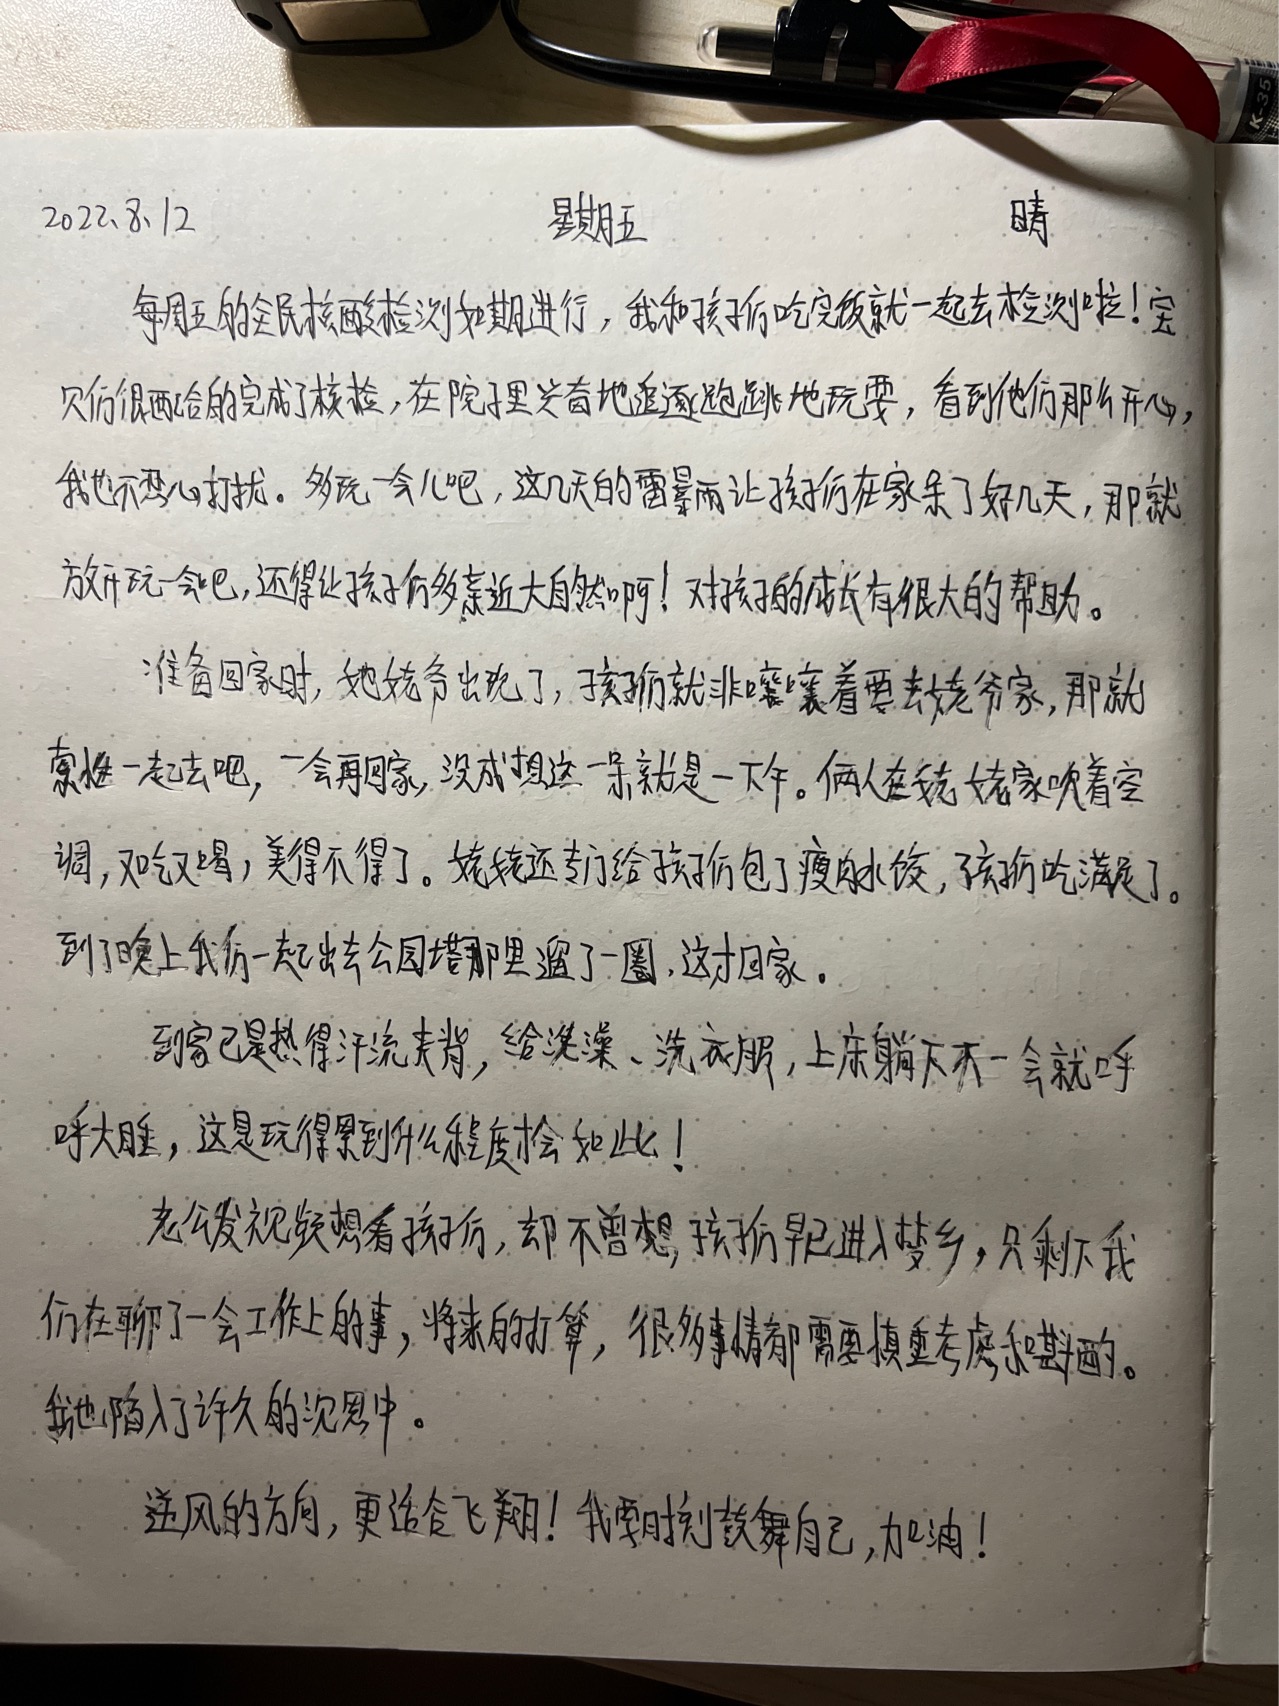 K-35
2022.8.12 星期五 晴
每周五的全民核酸检测如期进行，我和孩子们吃完饭就一起去检测啦！宝
贝们很配合的完成了核检，在院子里兴奋地追逐跑跳地玩耍，看到他们那么开心，
我也不忍心打扰。多玩一会儿吧，这几天的雷暴雨让孩子们在家呆了好几天，那就
放开玩一会吧，还得让孩子们多亲近大自然啊！对孩子的成长有很大的帮助。
准备回家时，她姥爷出现了，孩子们就非嚷嚷着要去姥爷家，那就
索性一起去吧，一会再回家，没成想这一呆就是一下午。俩人在姥姥家吹着空
调，又吃又喝，美得不得了。姥姥还专门给孩子们包了瘦肉水饺，孩子们吃满足了。
到了晚上我们一起出去公园塔那里遛了一圈，这才回家。
到家已是热得汗流夹背，给洗澡、洗衣服，上床躺下不一会就呼
呼大睡，这是玩得累到什么程度才会如此！
老公发视频想看孩子们，却不曾想，孩子们早已进入梦乡，只剩下我
们在聊了一会工作上的事，将来的打算，很多事情都需要慎重考虑和斟酌。
我也陷入了许久的沉思中。
逆风的方向，更适合飞翔！我要时刻鼓舞自己，加油！